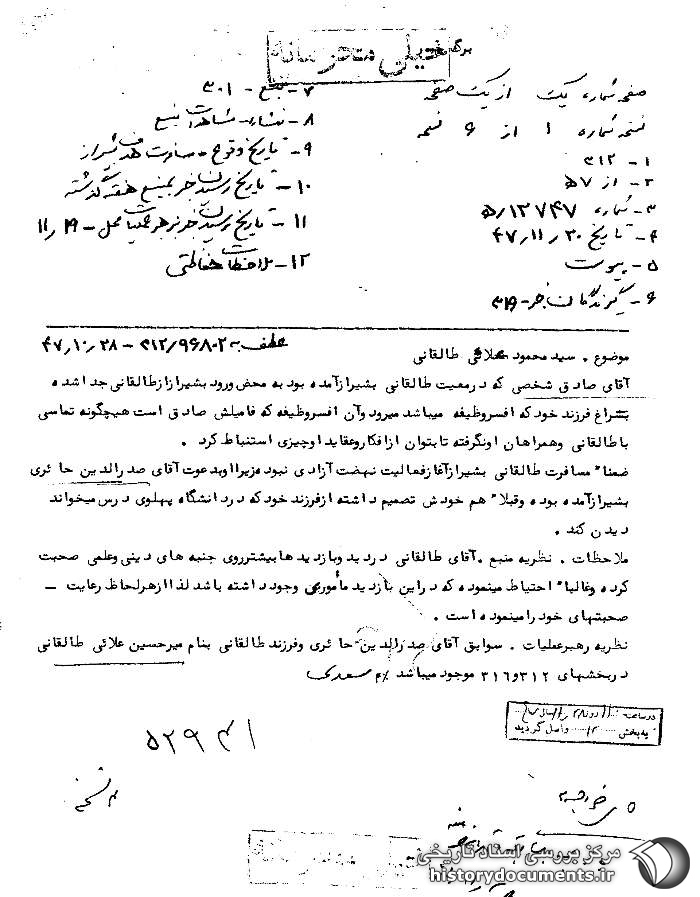 برگ
خیلی محرمانه
صفحه شماره یک از یک صفحه
نسخه شماره ۱ از ۶ نسخه
۱- ۳۱۲
۲- از ۵۷
۳- شماره ۵/۱۲۷۴۷
۴- تاریخ ۴۷/۱۱/۲۰
۵- پیوست
۶- گیرندگان خبر- ۳۱۹
۷- منبع - ۳۰۱
۸- منشاء- مشاهدات منبع
۹- تاریخ وقوع -
۱۰- تاریخ رسیدن خبر بمنبع هفته گذشته
۱۱- تاریخ رسیدن خبر برهبر عملیات محل - ۱۱/۱۹
۱۲- ملاحظات حفاظتی
عطف به ۳۱۲/۹۶۸۰۲ - ۴۷/۱۰/۲۸
موضوع . سید محمود طالقانی
آقای صادق شخصی که در معیت طالقانی بشیراز آمده بود به محض ورود بشیراز از طالقانی جدا شده
بسراغ فرزند خود که افسر وظیفه میباشد میرود وآن افسر وظیفه که فامیلش صادق است هیچگونه تماسی
با طالقانی وهمراهان او نگرفته تا بتوان از افکار وعقاید او چیزی استنباط کرد .
ضمنا" مسافرت طالقانی بشیراز آغاز فعالیت نهضت آزادی نبوده زیرا او بدعوت آقای صدرالدین حائری
بشیراز آمده بوده وقبلا" هم خودش تصمیم داشته از فرزند خود که در دانشگاه پهلوی درس میخواند
دیدن کند .
ملاحظات . نظریه منبع . آقای طالقانی در دید وبازدید ها بیشتر روی جنبه های دینی وعلمی صحبت
کرده وغالبا" احتیاط مینموده که در این بازدید مأموری وجود داشته باشد لذا از هر لحاظ رعایت -
صحبتهای خود را مینموده است .
نظریه رهبر عملیات . سوابق آقای صدرالدین حائری وفرزند طالقانی بنام میرحسین علائی طالقانی
در بخشهای ۳۱۲و۳۱۶ موجود میباشد /م سعدی
در ساعت
به بخش ۳۱۲ واصل گردید
۵۲۹۳۱
مرکز بررسی اسناد تاریخی
historydocuments.ir